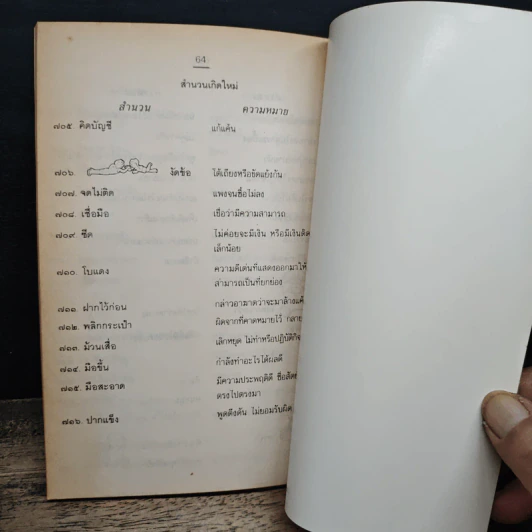 64
สำนวนเกิดใหม่
สำนวน ความหมาย
๗๐๕ คิดบัญชี แก้แค้น
๗๐๖ งัดข้อ โต้เถียงหรือขัดแย้งกัน
๗๐๗. จดไม่ติด แพงจนซื้อไม่ลง
๗๐๘. เชื่อมือ เชื่อว่ามีความสามารถ
๗๐๙. ซีด ไม่ค่อยจะมีเงิน หรือมีเงินติด
เล็กน้อย
๗๑๐. โบแดง ความดีเด่นที่แสดงออกมาให้
สามารถเป็นที่ยกย่อง
๗๑๑ ฝากไว้ก่อน กล่าวอาฆาตว่าจะมาล้างแค้
๗๑๒. พลิกกระเป๋า ผิดจากที่คาดหมายไว้ กลาย
๗๑๓. ม้วนเสื่อ เลิกหยุด ไม่ทำหรือปฏิบัติกิจ
๗๑๔. มือขึ้น กำลังทำอะไรได้ผลดี
๗๑๕. มือสะอาด มีความประพฤติดี ซื่อสัตย์
ตรงไปตรงมา
๗๑๖. ปากแข็ง พูดดึงดัน ไม่ยอมรับผิด